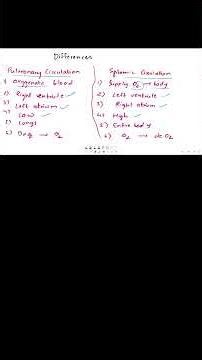 Differences
Pulmonary Circulation
1) Oxygenate blood
2) Right ventricle
3) Left atrium
4) Low
5) Lungs
6) Deoxy → O2
Systemic Circulation
1) Supply O2 → body
2) Left ventricle
3) Right atrium
4) High
5) Entire body
6) O2 → de O2